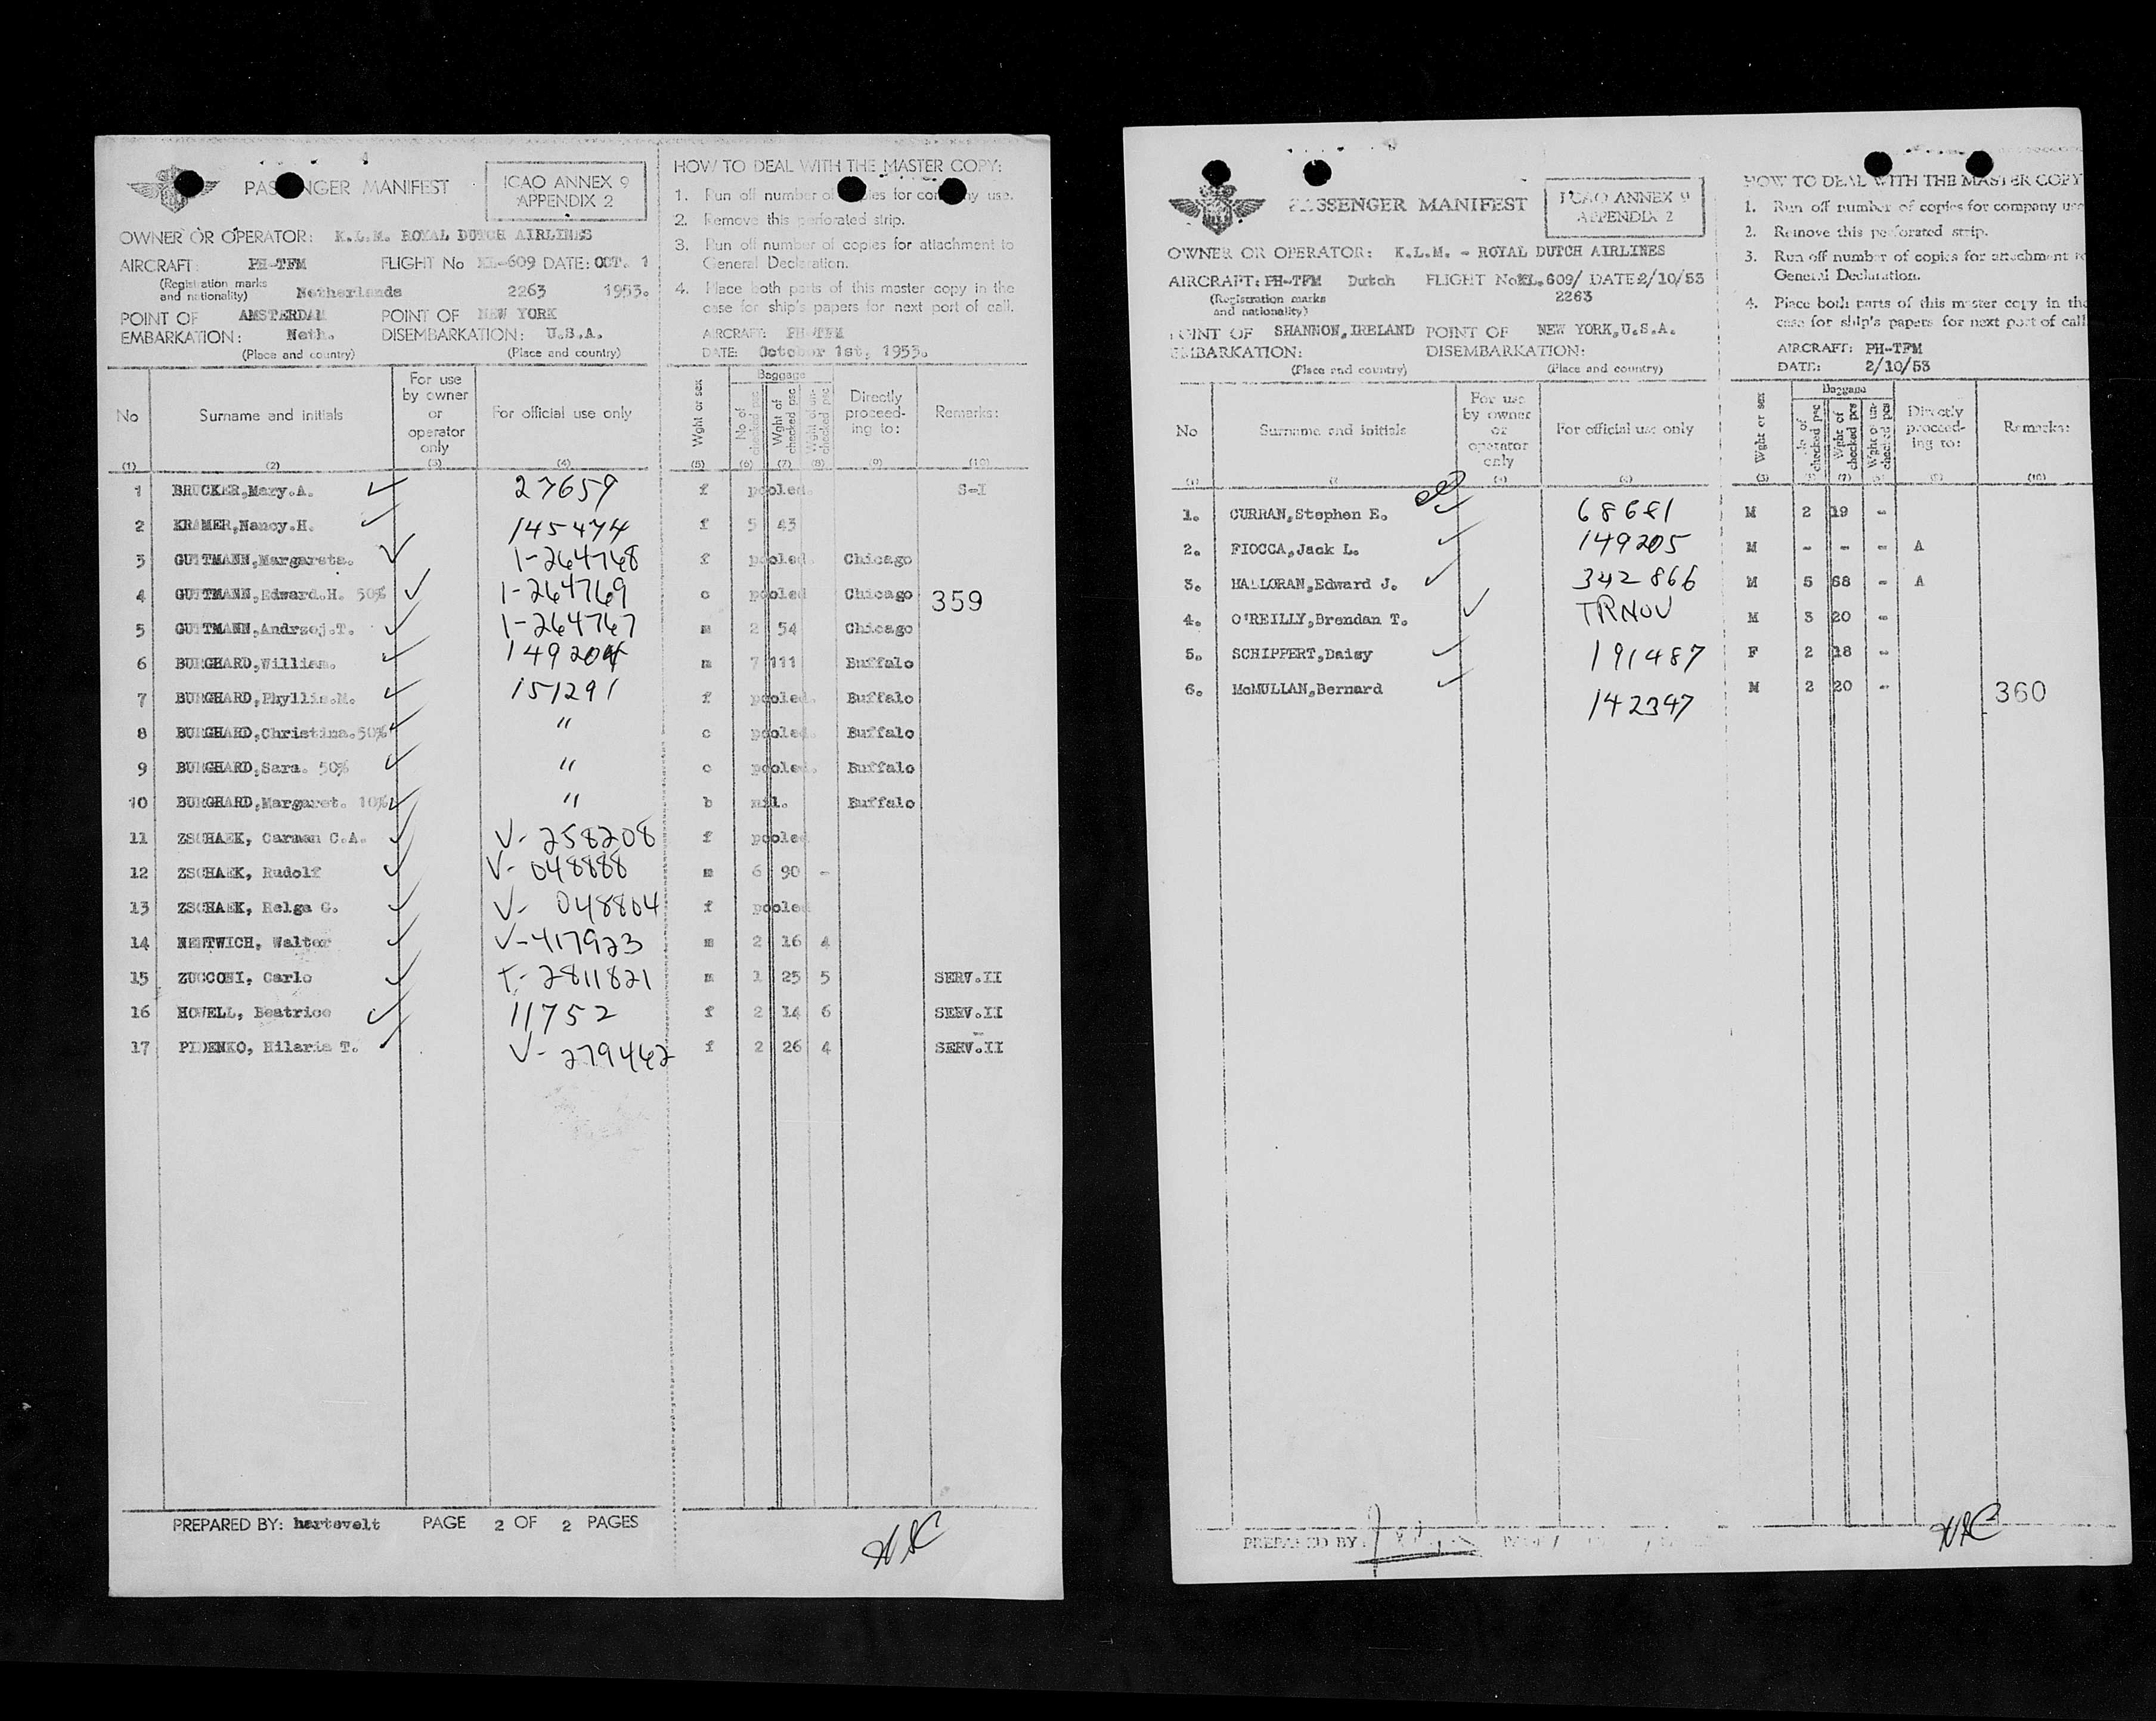 PASSENGER MANIFEST
ICAO ANNEX 9
APPENDIX 2
OWNER OR OPERATOR: K.L.M. ROYAL DUTCH AIRLINES
AIRCRAFT: PH-TFM FLIGHT No KL-609 DATE: OCT. 1
(Registration marks and nationality) Netherlands 2263 1953.
POINT OF EMBARKATION: AMSTERDAM Neth. POINT OF DISEMBARKATION: NEW YORK U.S.A.
(Place and country) (Place and country)
HOW TO DEAL WITH THE MASTER COPY:
1. Run off number of copies for company use.
2. Remove this perforated strip.
3. Run off number of copies for attachment to
General Declaration.
4. Place both parts of this master copy in the
case for ship's papers for next port of call.
AIRCRAFT: PH-TFM
DATE: October 1st, 1953.
No Surname and initials For use by owner or operator only For official use only Wght or sex Baggage No of checked pcs Wght of checked pcs Wght of un-checked pcs Directly proceed-ing to: Remarks:
(1) (2) (3) (4) (5) (6) (7) (8) (9) (10)
1 BRUCKER,Mary.A. 27659 f pooled. S-I
2 KRAMER,Nancy.H. 145474 f 5 43
3 GUTTMANN,Margareta. 1-264768 f pooled. Chicago
4 GUTTMANN,Edward.H. 50% 1-264769 c pooled Chicago 359
5 GUTTMANN,Andrzej.T. 1-264767 m 2 54 Chicago
6 BURGHARD,William. 149204 m 7 111 Buffalo
7 BURGHARD,Phyllis.M. 151291 f pooled. Buffalo
8 BURGHARD,Christina.50% " c pooled. Buffalo
9 BURGHARD,Sara. 50% " c pooled. Buffalo
10 BURGHARD,Margaret. 10% " b nil. Buffalo
11 ZSCHAEK, Carmen C.A. V-258208 f pooled
12 ZSCHAEK, Rudolf V-048888 m 6 90 -
13 ZSCHAEK, Helga G. V-048804 f pooled
14 NENTWICH, Walter V-417923 m 2 16 4
15 ZUCCONI, Carlo T-2811821 m 1 25 5 SERV.II
16 HOWELL, Beatrice 11752 f 2 14 6 SERV.II
17 PIDENKO, Hilaria T. V-279462 f 2 26 4 SERV.II
PREPARED BY: hartevelt PAGE 2 OF 2 PAGES
PASSENGER MANIFEST
ICAO ANNEX 9
APPENDIX 2
OWNER OR OPERATOR: K.L.M. - ROYAL DUTCH AIRLINES
AIRCRAFT: PH-TFM Dutch FLIGHT No KL.609/ DATE 2/10/53
(Registration marks and nationality) 2263
POINT OF EMBARKATION: SHANNON,IRELAND POINT OF DISEMBARKATION: NEW YORK,U.S.A.
(Place and country) (Place and country)
HOW TO DEAL WITH THE MASTER COPY
1. Run off number of copies for company use
2. Remove this perforated strip.
3. Run off number of copies for attachment to
General Declaration.
4. Place both parts of this master copy in the
case for ship's papers for next port of call
AIRCRAFT: PH-TFM
DATE: 2/10/53
No Surname and initials For use by owner or operator only For official use only Wght or sex Baggage No of checked pcs Wght of checked pcs Wght of un-checked pcs Directly proceed-ing to: Remarks:
1. CURRAN,Stephen E. 68681 M 2 19 -
2. FIOCCA,Jack L. 149205 M - - - A
3. HALLORAN,Edward J. 342866 M 5 68 - A
4. O'REILLY,Brendan T. TRNOV M 3 20 -
5. SCHIPPERT,Daisy 191487 F 2 18 -
6. McMULLAN,Bernard 142347 M 2 20 - 360
PREPARED BY: